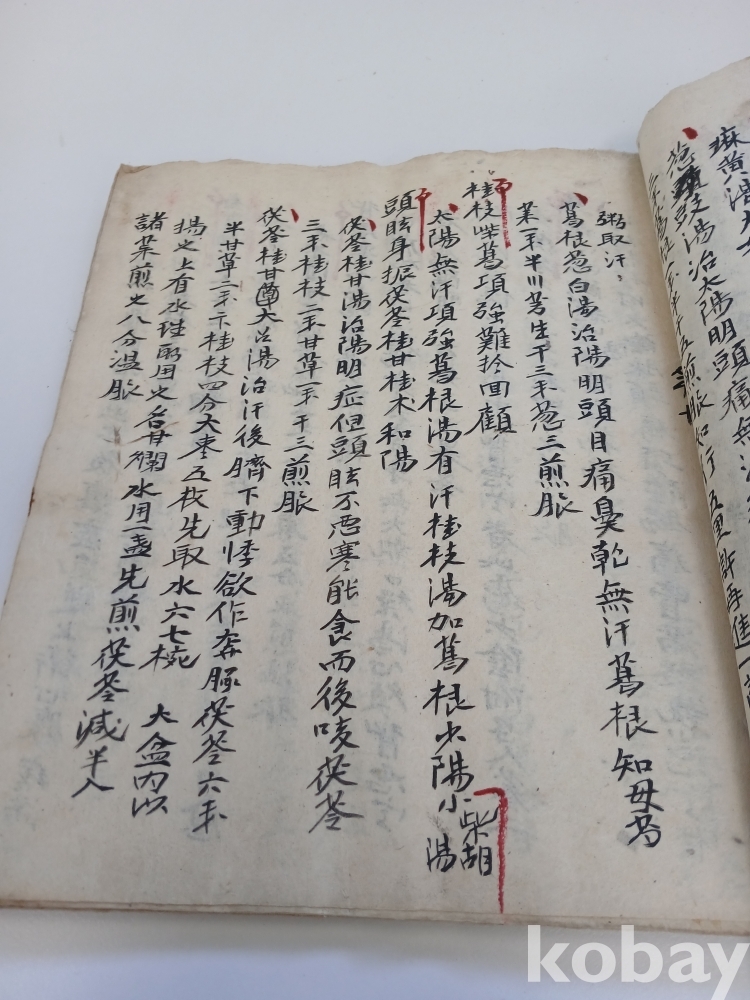 麻黃湯
葱豉湯治太陽明頭痛無汗
煎服如行五里許再進一
粥取汗
葛根葱白湯治陽明頭目痛鼻乾無汗葛根知母芍
藥一半川芎生干三葱三煎服
桂枝柴葛項強難拎回顧
太陽無汗項強葛根湯有汗桂枝湯加葛根少陽小柴胡湯
頭眩身振茯苓桂甘桂术和陽
茯苓桂甘湯治陽明症但頭眩不恶寒能食而後咳茯苓
三桂枝一甘草一干三煎服
茯苓桂甘大湯治汗後臍下動悸欲作奔豚茯苓六
半甘草二桂枝四分大枣五枚先取水六七椀大盆内以
揚之上有水珠用之名甘爛水用一盏先煎茯苓減半入
諸藥煎之八分溫服
kobay